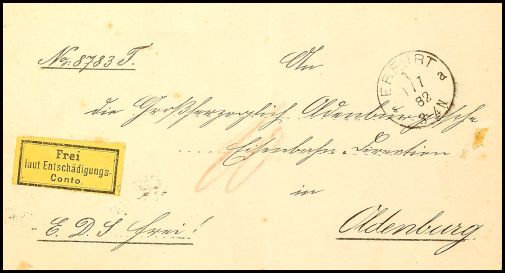 No: 8783 T.
An
die Großherzoglich Oldenburgische
Eisenbahn-Direction
in
Oldenburg
E. D. S. frei!
Frei
laut Entschädigungs-
Conto
ERFURT
1 7
82
8-9N
a